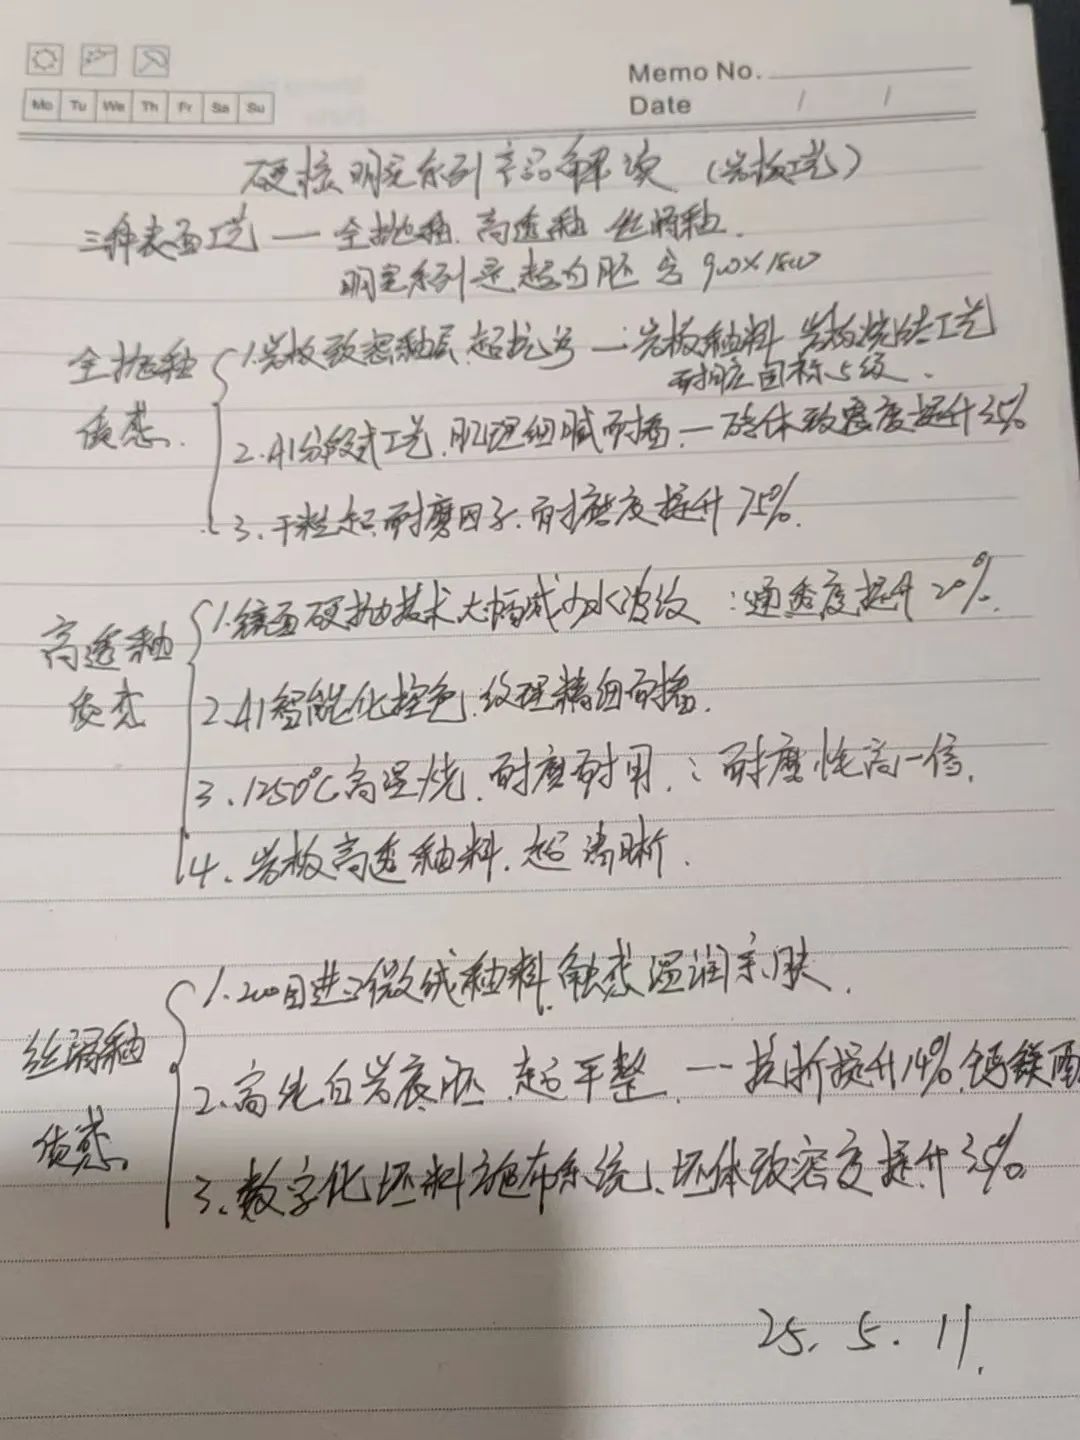 Memo No.
Mo Tu We Th Fr Sa Su
Date / /
硬核明星系列产品解读（岩板工艺）
三种表面工艺 — 全抛釉、高透釉 丝绸釉.
系列是超白胚 含 900×1800
全抛釉
优态.
1.岩板致密釉层 超抗污 — 岩板釉料 岩板烧结工艺
耐脏国标5级.
2.AI分段式工艺,肌理细腻耐播 — 砖体致密度提升35%
3、干粒超耐磨因子.耐磨度提升75%.
高透釉
优态
1.镜面硬抛技术大幅减少水波纹 :通透度提升20%.
2.AI智能化控色,纹理精细耐播.
3、1250℃高温烧,耐磨耐用,:耐磨性高一倍.
4、岩板高透釉料.超清晰.
丝绸釉
优态
1.200目进口微绒釉料,触感温润亲肤.
2.高纯白岩底胚 超平整 — 抗折提升14%,钙镁
3、数字化坯料施布系统、坯体致密度提升35%.
25.5.11.